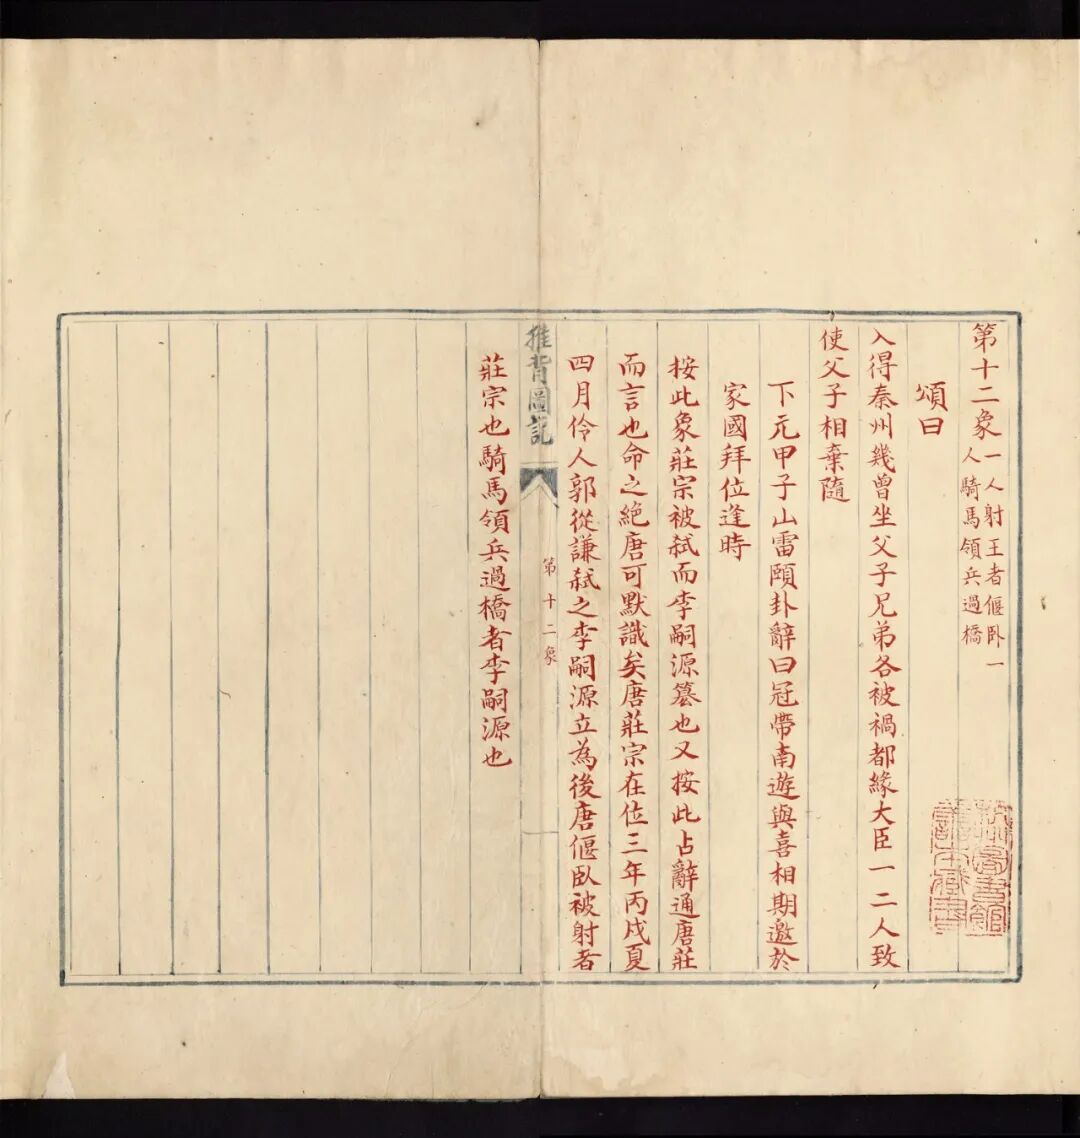 第十二象 一人射王者偃卧一
人騎馬領兵過橋
頌曰
入得秦州幾曾坐父子兄弟各被禍都緣大臣一二人致
使父子相棄隨
下元甲子山雷頤卦辭曰冠帶南遊與喜相期邀於
家國拜位逢時
按此象莊宗被弒而李嗣源簒也又按此占辭通唐莊
而言也命之絕唐可默識矣唐莊宗在位三年丙戌夏
四月伶人郭從謙弒之李嗣源立為後唐偃臥被射者
推背圖說
第十二象
莊宗也騎馬領兵過橋者李嗣源也